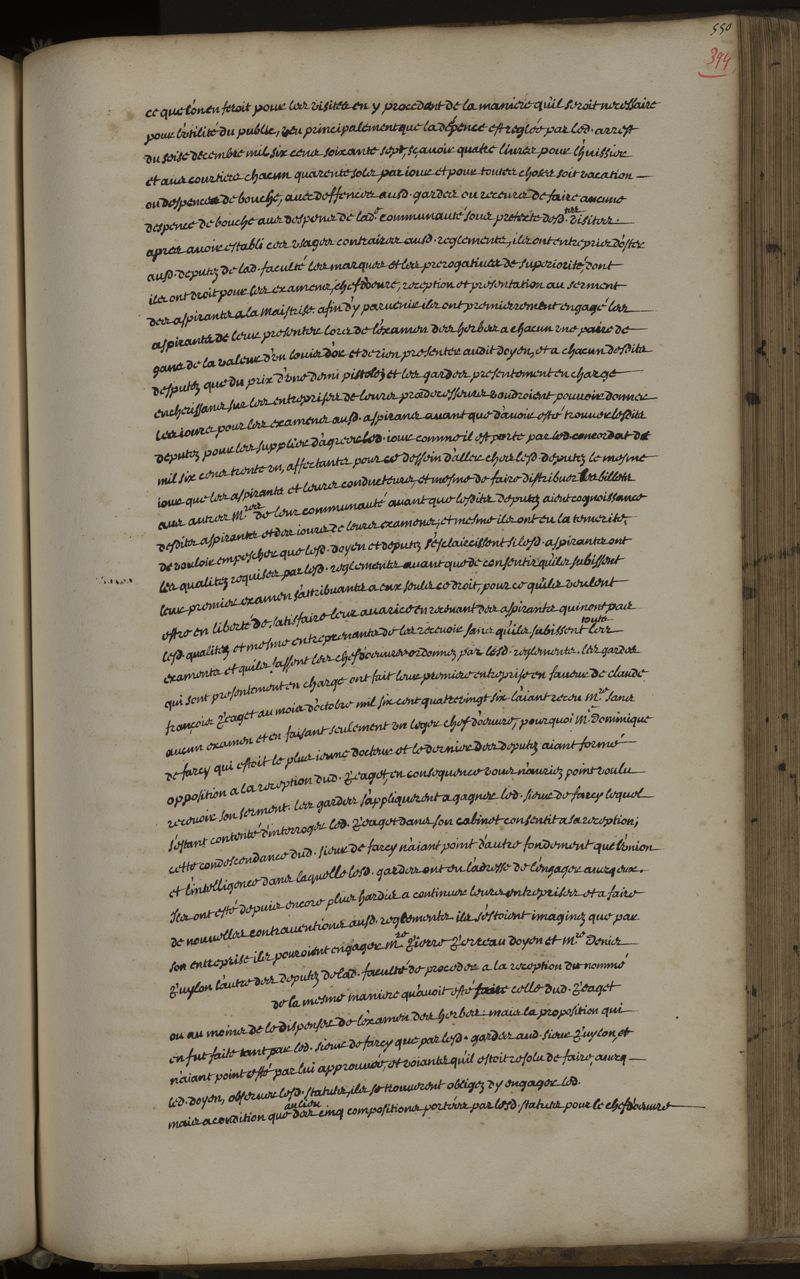 550
394
ce que l'on en feroit pour les visites en y procedant de la maniere qu'il seroit necessaire
pour l'utilité du public, veu principalement que la dépence est reglée par led. arrest
du seise decembre mil six cens soixante sept, sçavoir quatre livres pour l'huissier
et aux courtiers chacun quarente sols par iour et pour toutes choses soit vacation
ou despences de bouche, avec deffences ausd. gardes ou receveurs de faire aucune
despence de bouche aux despens de lad.e communauté sous pretexte desd.tes visites.
apres avoir establi ces usages contraires ausd. reglements, ils ont entrepris d'oster
aux deputez de lad. faculté les marques et les prerogatives de superiorité, dont
ils ont droit pour les examens, chefdoeuvre, reception et presentation au serment
des aspirants a la maistrise. afin d'y parvenir ils ont premierement engagé les
aspirants de leur presenter lors de l'examen des herbes a chacun une paire de
gans de la valeur d'un louis d'or et de rien presenter audit doyen, et a chacun desdits
desputez que du prix d'une demi pistole et les gardes presentement en charge
encherissans sur les entreprises de leurs predecesseurs voudroient pouvoir donner
les iours pour les examens ausd. aspirans avant que d'avoir esté trouver lesdits
deputez pour les supplier d'agreer led. iour comme il est porté par led. concordat de
mil six cens trente un, affectants pour ce dessein d'aller chez lesd. deputez le mesme
iour que les aspirants et leurs conducteurs, et mesme de faire distribuer les billets
aux autres M.res de leur communauté avant que lesdits deputez aient cognoissance
desdits aspirants et des iours de leurs examens, et mesme ils ont eu la temerité,
de vouloir empescher que lesd. doyen et deputez s'esclaircissent si lesd. aspirants ont
les qualitez requises par lesd. reglements avant que de consentir qu'ils subissent
leur premier examen s'attribuants a eux seuls ce droit, pour ce qu'ils veulent
estre en liberté de satisfaire leur avarice en recevant des aspirants qui n'ont pas
lesd. qualitez et mesme entreprenants de les recevoir sans qu'ils subissent touts les
examents et qu'ils fassent les chefdoeuvres ordonnez par lesd. reglements. les gardes
qui sont presentement en charge ont fait leur premiere entreprise en faveur de claude
françois geaget au mois d'octobre mil six cent quatrevingt six l'aiant receu M.re sans
aucun examen et en faisant seulement un leger chef d'oeuvre, pourquoi M.e Dominique
de farcy qui estoit le plus ieune docteur et le dernier des deputez aiant formé
opposition a la reception dud. geaget, en consequence vous n'auriez point voulu
recevoir son serment. les gardes s'appliquerent a gagner led. sieur de farcy lequel
s'estant contenté d'interroger led. geaget dans son cabinet consentit a sa reception;
cette condescendance dud. sieur de farcy n'aiant point d'autre fondement que l'union
et l'intelligence dans laquelle lesd. gardes ont eu l'adresse de l'engager avecq eux.
Ils ont esté depuis encore plus hardis a continuer leurs entreprises et a faire
de nouvelles contraventions ausd. reglements ils s'estoient imaginez que par
son entreprise ils pouroient engager M.re pierre perreau doyen et M.re Denis
puylon l'autre des deputez de lad. faculté de proceder a la reception du nommé
de la mesme maniere qu'avoit esté faite celle dud. geaget
ou au moins de le dispenser de l'examen des herbes: mais la proposition qui
en fut faite tant par led. sieur de farcy que par lesd. gardes aud. sieur puylon, et
n'aiant point esté par lui approuvée, et voiants qu'il estoit resolu de faire, avecq
led. doyen, observer lesd. statuts, ils se trouverent obligez d'y engager led.
mais a condition qu'au lieu des cinq compositions portées par lesd. statuts pour le chefdoeuvre